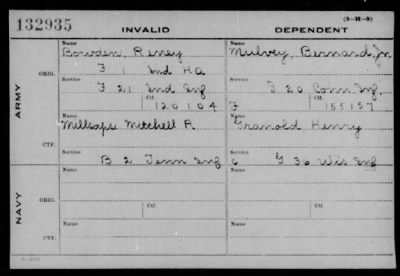 132935
INVALID
DEPENDENT
(3-H-3)
Name
Name
Bowden, Reney
Mulvey, Bernard, Jr
F 1 Ind H A
ORIG.
Service
Service
F 21 Ind Inf
I 20 Conn Inf.
Ctf.
Ctf.
120104
F
155157
ARMY
Name
Name
Millsaps Mitchell R
Granold Henry
CTF.
Service
Service
B 2 Tenn Inf
C
G 36 Wis Inf
Name
Name
ORIG.
Service
Ctf.
Service
Ctf.
NAVY
Name
Name
CTF.